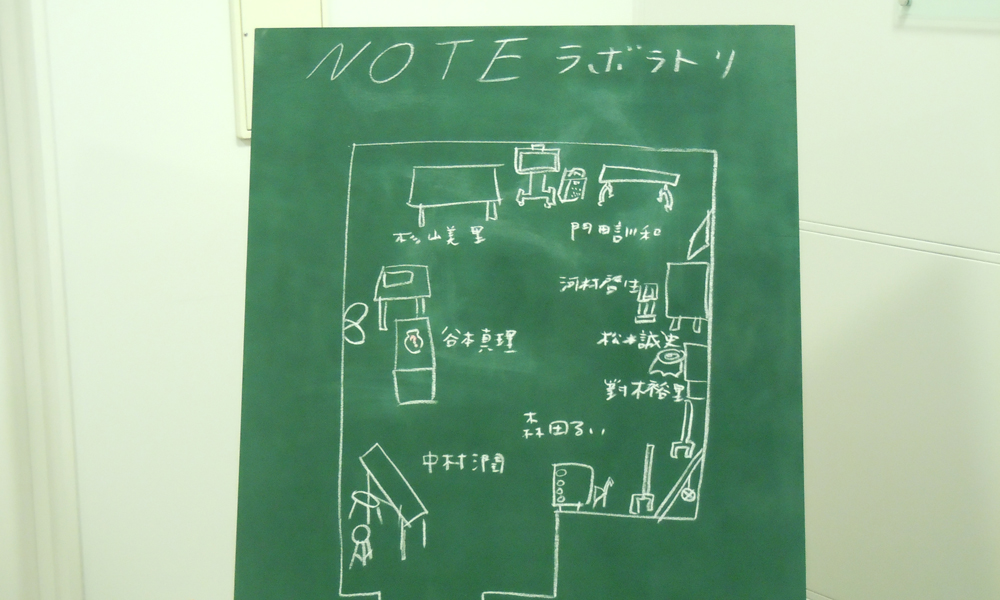 NOTE ラボラトリ
杉山美里
門田訓和
河村啓生
谷本真理
松本誠史
對木裕里
森田るい
中村潤